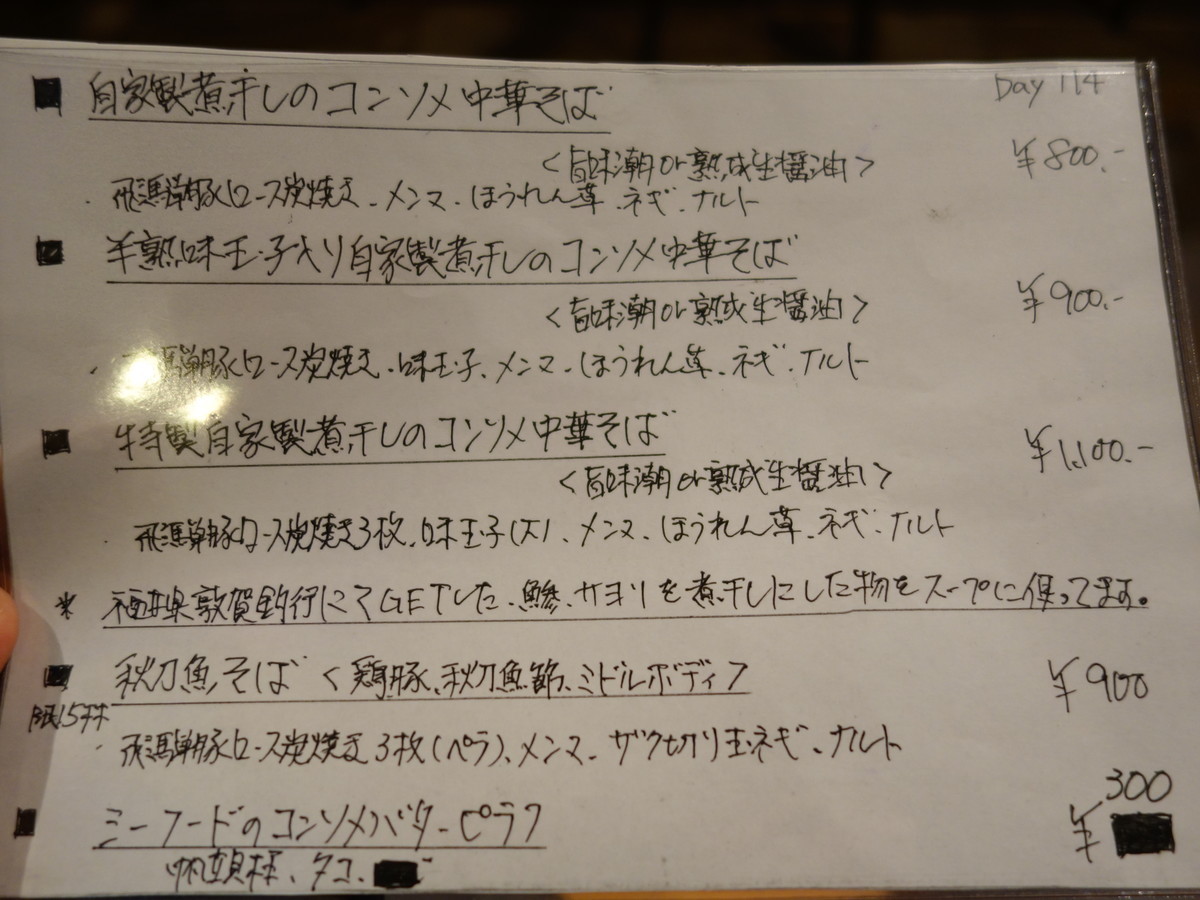 Day 114
■ 自家製煮干しのコンソメ中華そば
<旨味潮or熟成生醤油> ¥800.-
・飛騨豚ロース炭焼き、メンマ、ほうれん草、ネギ、ナルト
■ 半熟味玉子入り自家製煮干しのコンソメ中華そば
<旨味潮or熟成生醤油> ¥900.-
・飛騨豚ロース炭焼き、味玉子、メンマ、ほうれん草、ネギ、ナルト
■ 特製自家製煮干しのコンソメ中華そば ¥1,100.-
<旨味潮or熟成生醤油>
・飛騨豚ロース炭焼き3枚、味玉子(大)、メンマ、ほうれん草、ネギ、ナルト
* 福井県敦賀釣行にてGETした、鯵、サヨリを煮干しにした物をスープに使ってます。
■ 秋刀魚そば <鶏豚、秋刀魚節、ミドルボディ> ¥900
限15杯
・飛騨豚ロース炭焼き3枚(ペラ)、メンマ、ザク切り玉ネギ、ナルト
■ シーフードのコンソメバターピラフ ¥300
帆立貝柱、タコ、